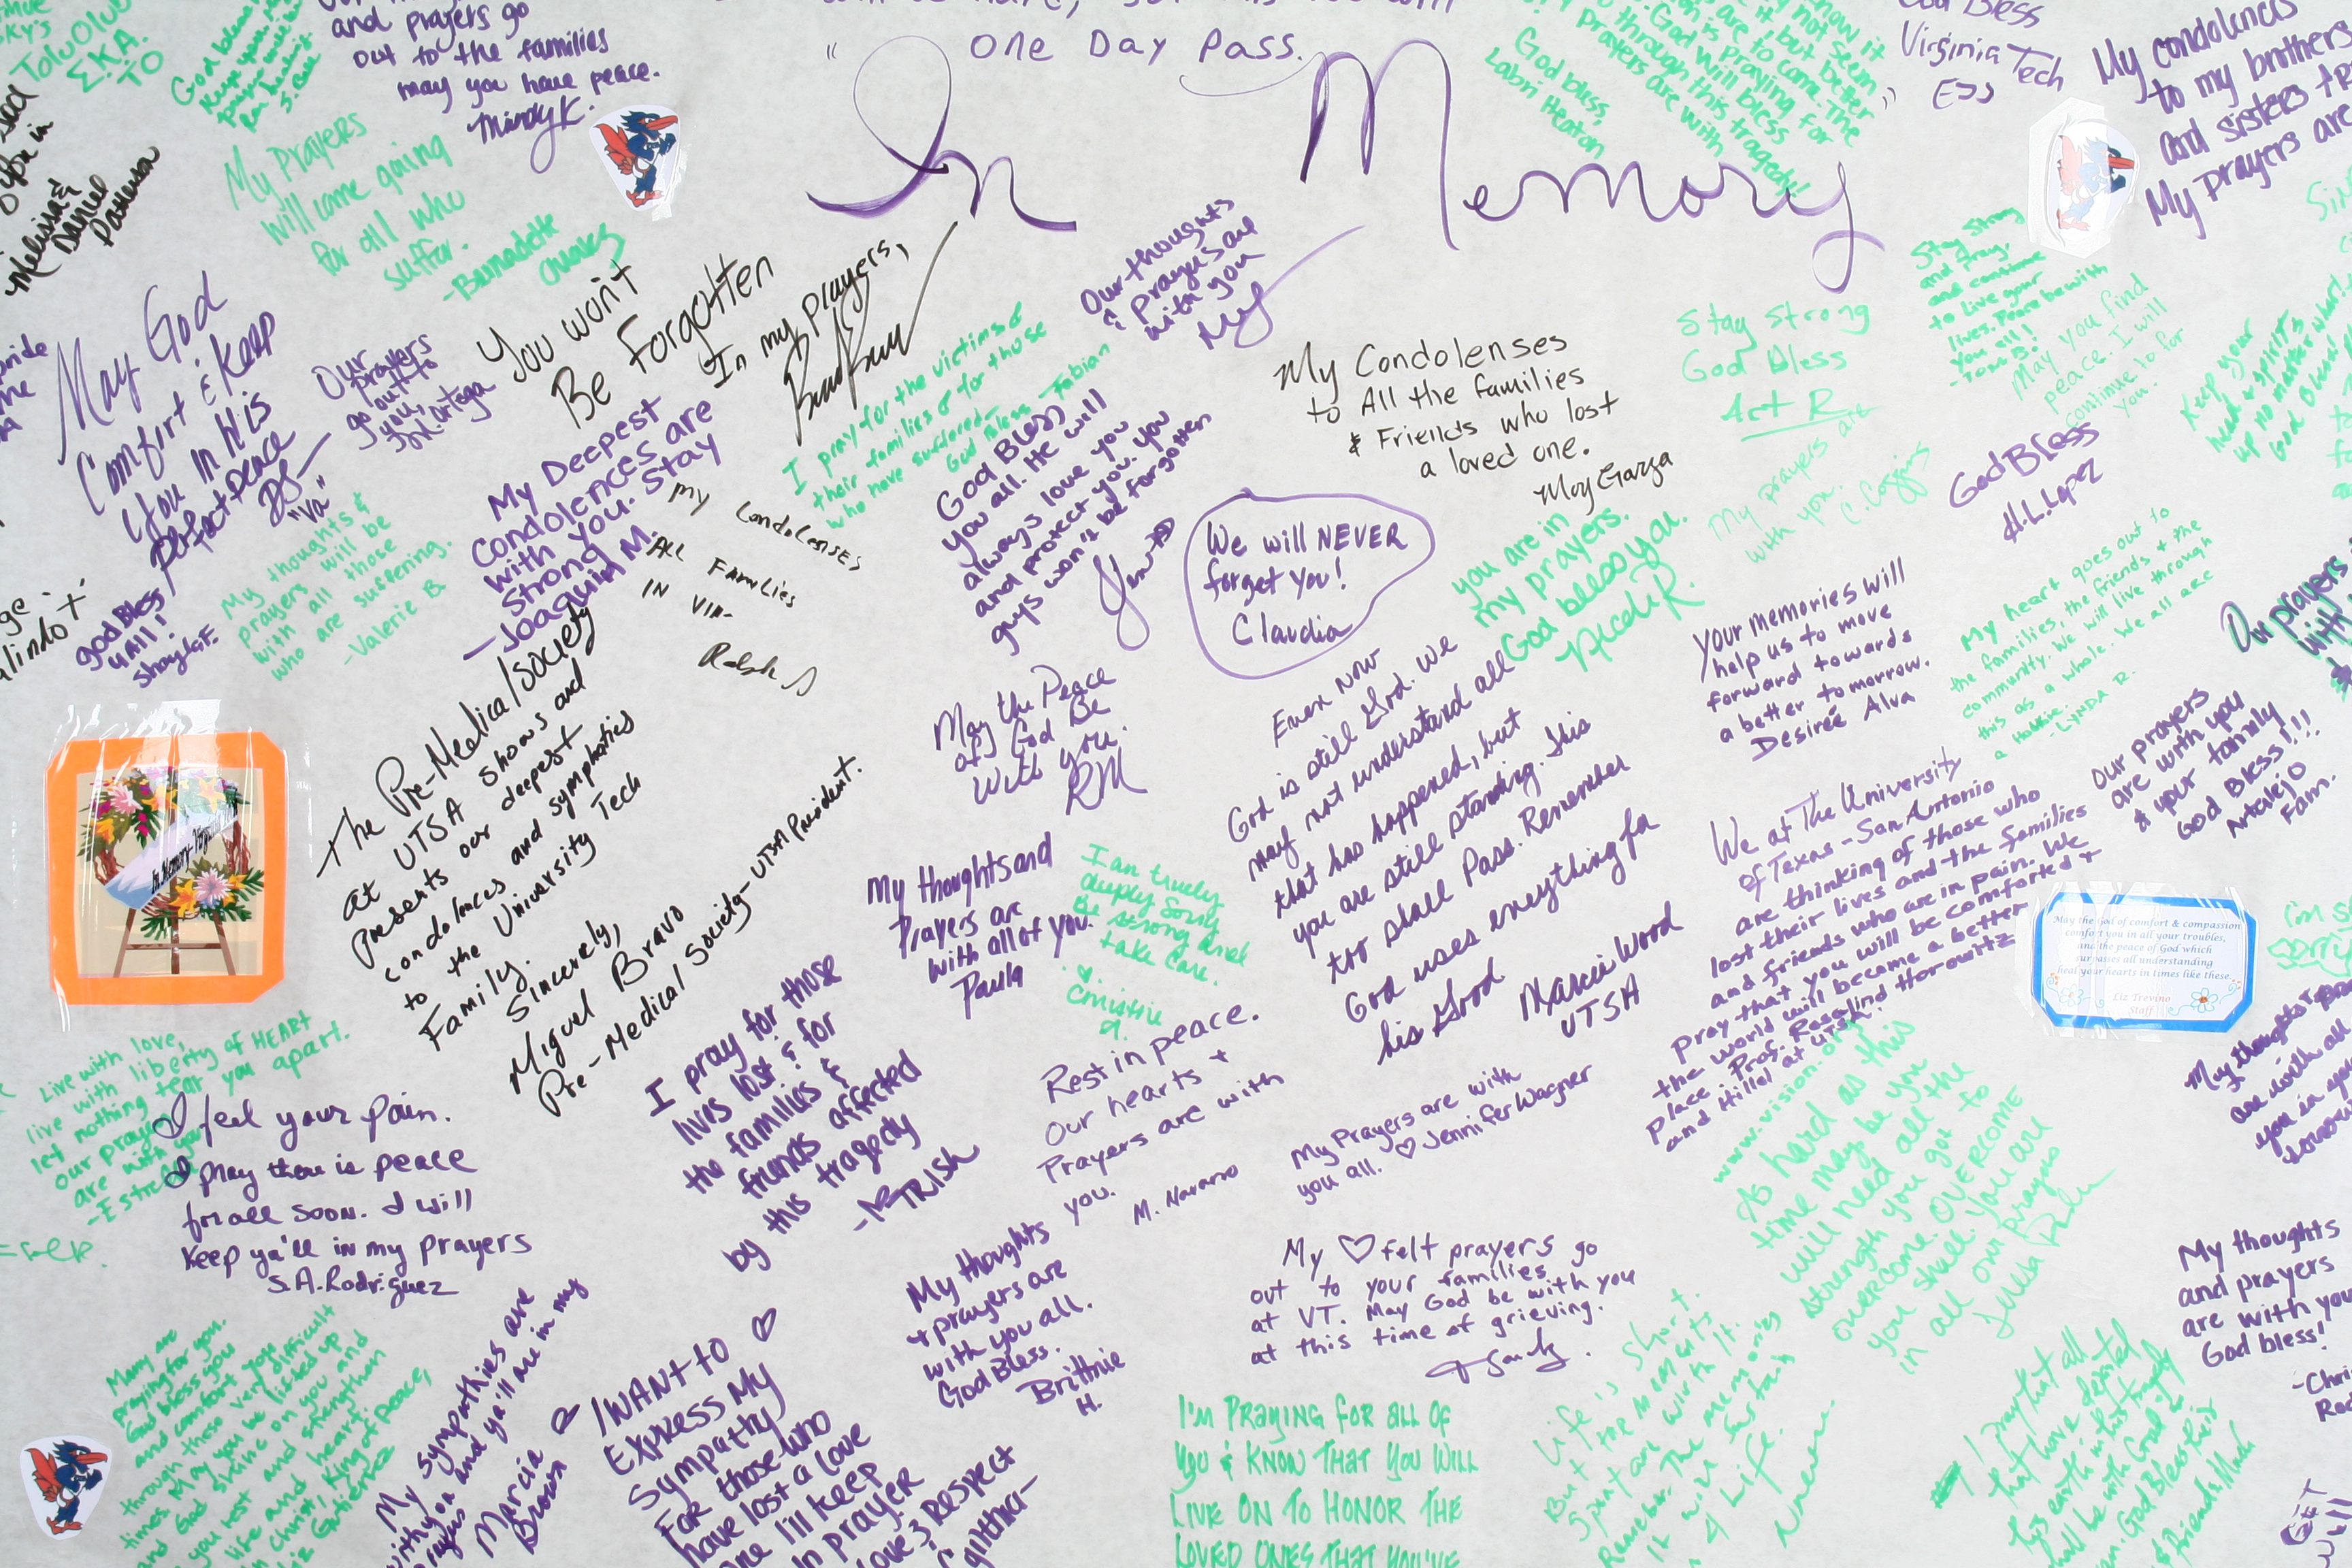 and prayers go
out to the families
may you have peace.
Mindy K.
one Day Pass.
"In Memory"
God bless,
Labri Heaton
God Bless
Virginia Tech
ESS
My condolences
to my brothers
and sisters
My prayers are
ToluOlu
ΣKA.
TO
Melissa &
Daniel
Patterson
My Prayers
will come going
for all who
suffer.
-Bernadette
May God
Comfort & Keep
you in His
perfect peace
"Va"
Our
prayers
go out to
you,
Ortega
You won't
Be Forgotten
In my prayers,
I pray for the victims &
their families & for those
who have suffered-
God Bless Fabian
Our thoughts
& prayers are
with you
My Condolenses
to All the families
& Friends who lost
a loved one.
Moy Garza
Stay Strong
God Bless
Art R
Stay Strong
and Pray,
and continue
to live your
lives. Peace be with
you all!
May you find
peace. I will
continue to for
you.
My prayers are
with you.
C. Coggins
God Bless
H.L. Lopez
My Deepest
Condolences are
with you. Stay
Strong
-Joaquin M.
My Condolenses
All Families
in VIR.
Ralph
God Bless
you all. He will
always love you
and protect you. You
guys won't be forgotten
We will NEVER
forget you!
Claudia
you are in
my prayers.
God bless you.
Nicole R.
My thoughts &
prayers will be
with all those
who are suffering.
-Valerie B
God Bless
y'all!
Shayla F.
Your memories will
help us to move
forward towards
a better tomorrow.
Desireé Alva
My heart goes out to
the families, the friends & the
community. We will live through
this as a whole. We all are
a Hokkie.
-LYNDA R.
Our prayers
with
The Pre-Medical Society
at UTSA shows and
presents our deepest
condolences and symphaties
to the University Tech
Family.
Sincerely,
Miguel Bravo
Pre-Medical Society- UTSA President.
May the Peace
of God Be
With you.
RM
Even Now
God is still God. We
may not understand all
that has happened, but
you are still standing. This
too shall Pass. Remember
God uses everything for
his Good
Marcia Wood
UTSA
We at The University
of Texas-San Antonio
are thinking of those who
lost their lives and the families
and friends who are in pain. We
pray that you will be comforted +
the world will become a better
place. Prof. Rosalind Horowitz
and Hillel at UTSA.
our prayers
are with you
& your family
God Bless!!!
Artalejo
Fam.
In Memory
May the God of comfort & compassion
comfort you in all your troubles,
and the peace of God which
surpasses all understanding
heal your hearts in times like these.
Liz Trevino
Staff
My thoughts and
Prayers are
with all of you.
Paula
I am truely
deeply sorry
Be strong and
take care.
Christine
I pray for those
lives lost & for
the families &
friends affected
by this tragedy
-TRISH
Rest in peace.
Our hearts +
Prayers are with
you.
M. Navarro
My Prayers are with
you all. ♡ Jennifer Wagner
www.vision.org
As hard as this
time may be you
will need all the
strength you got to
overcome. OVERCOME
you shall. You are
in all our prayers
Live with love,
live with liberty of HEART
let nothing tear you apart.
our prayers
are with you
I feel your pain.
I pray there is peace
for all soon. I will
Keep ya'll in my prayers
S.A. Rodriguez
My thoughts
+ prayers are
with you all.
God Bless.
Brittnie
H.
My ♡ felt prayers go
out to your families
at VT. May God be with you
at this time of grieving.
Sandy.
My thoughts
and prayers
are with you
God bless!
Many are
praying for you.
God bless you
and comfort you
through these very difficult
times. May you be lifted up
and God shine on you and
you rest and strengthen
life and heart
in Christ, King of peace,
Liz Gutierrez
My sympathies are
with you and ya'll are in my
prayers
Marcia
Brown
I WANT to
Express My
Sympathy
For those who
have lost a love
one I'll keep
in prayer
Love & Respect
I'M PRAYING FOR ALL OF
YOU & KNOW THAT YOU WILL
LIVE ON TO HONOR THE
LOVED ONES THAT YOU'VE
Life is short.
But the moments
spent are worth it.
Remember. The memories
it will sustain
4 Life.
I pray that all
that have departed
this earth in this tragedy
shall be with God
God Bless their
friends.